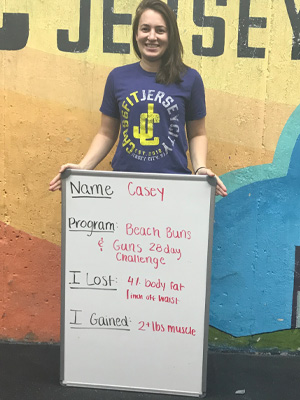 JERSEY
CROSSFIT JERSEY CITY
JC
EST. 2013
JERSEY CITY, NJ
Name Casey
Program: Beach Buns
& Guns 28 day
Challenge
I Lost: 4% body fat
1 inch off waist
I Gained: 2+ lbs muscle